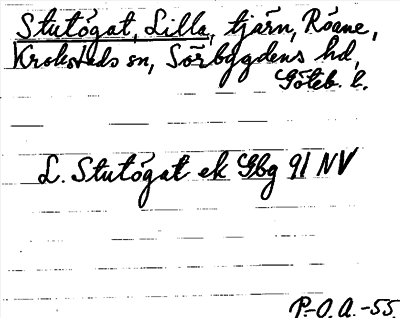 Stutögat, Lilla, tjärn, Röane,
Krokstads sn, Sörbygdens hd,
Göteb. l.
L. Stutögat ek Gbg 91 NV
P.-O.A.-55.